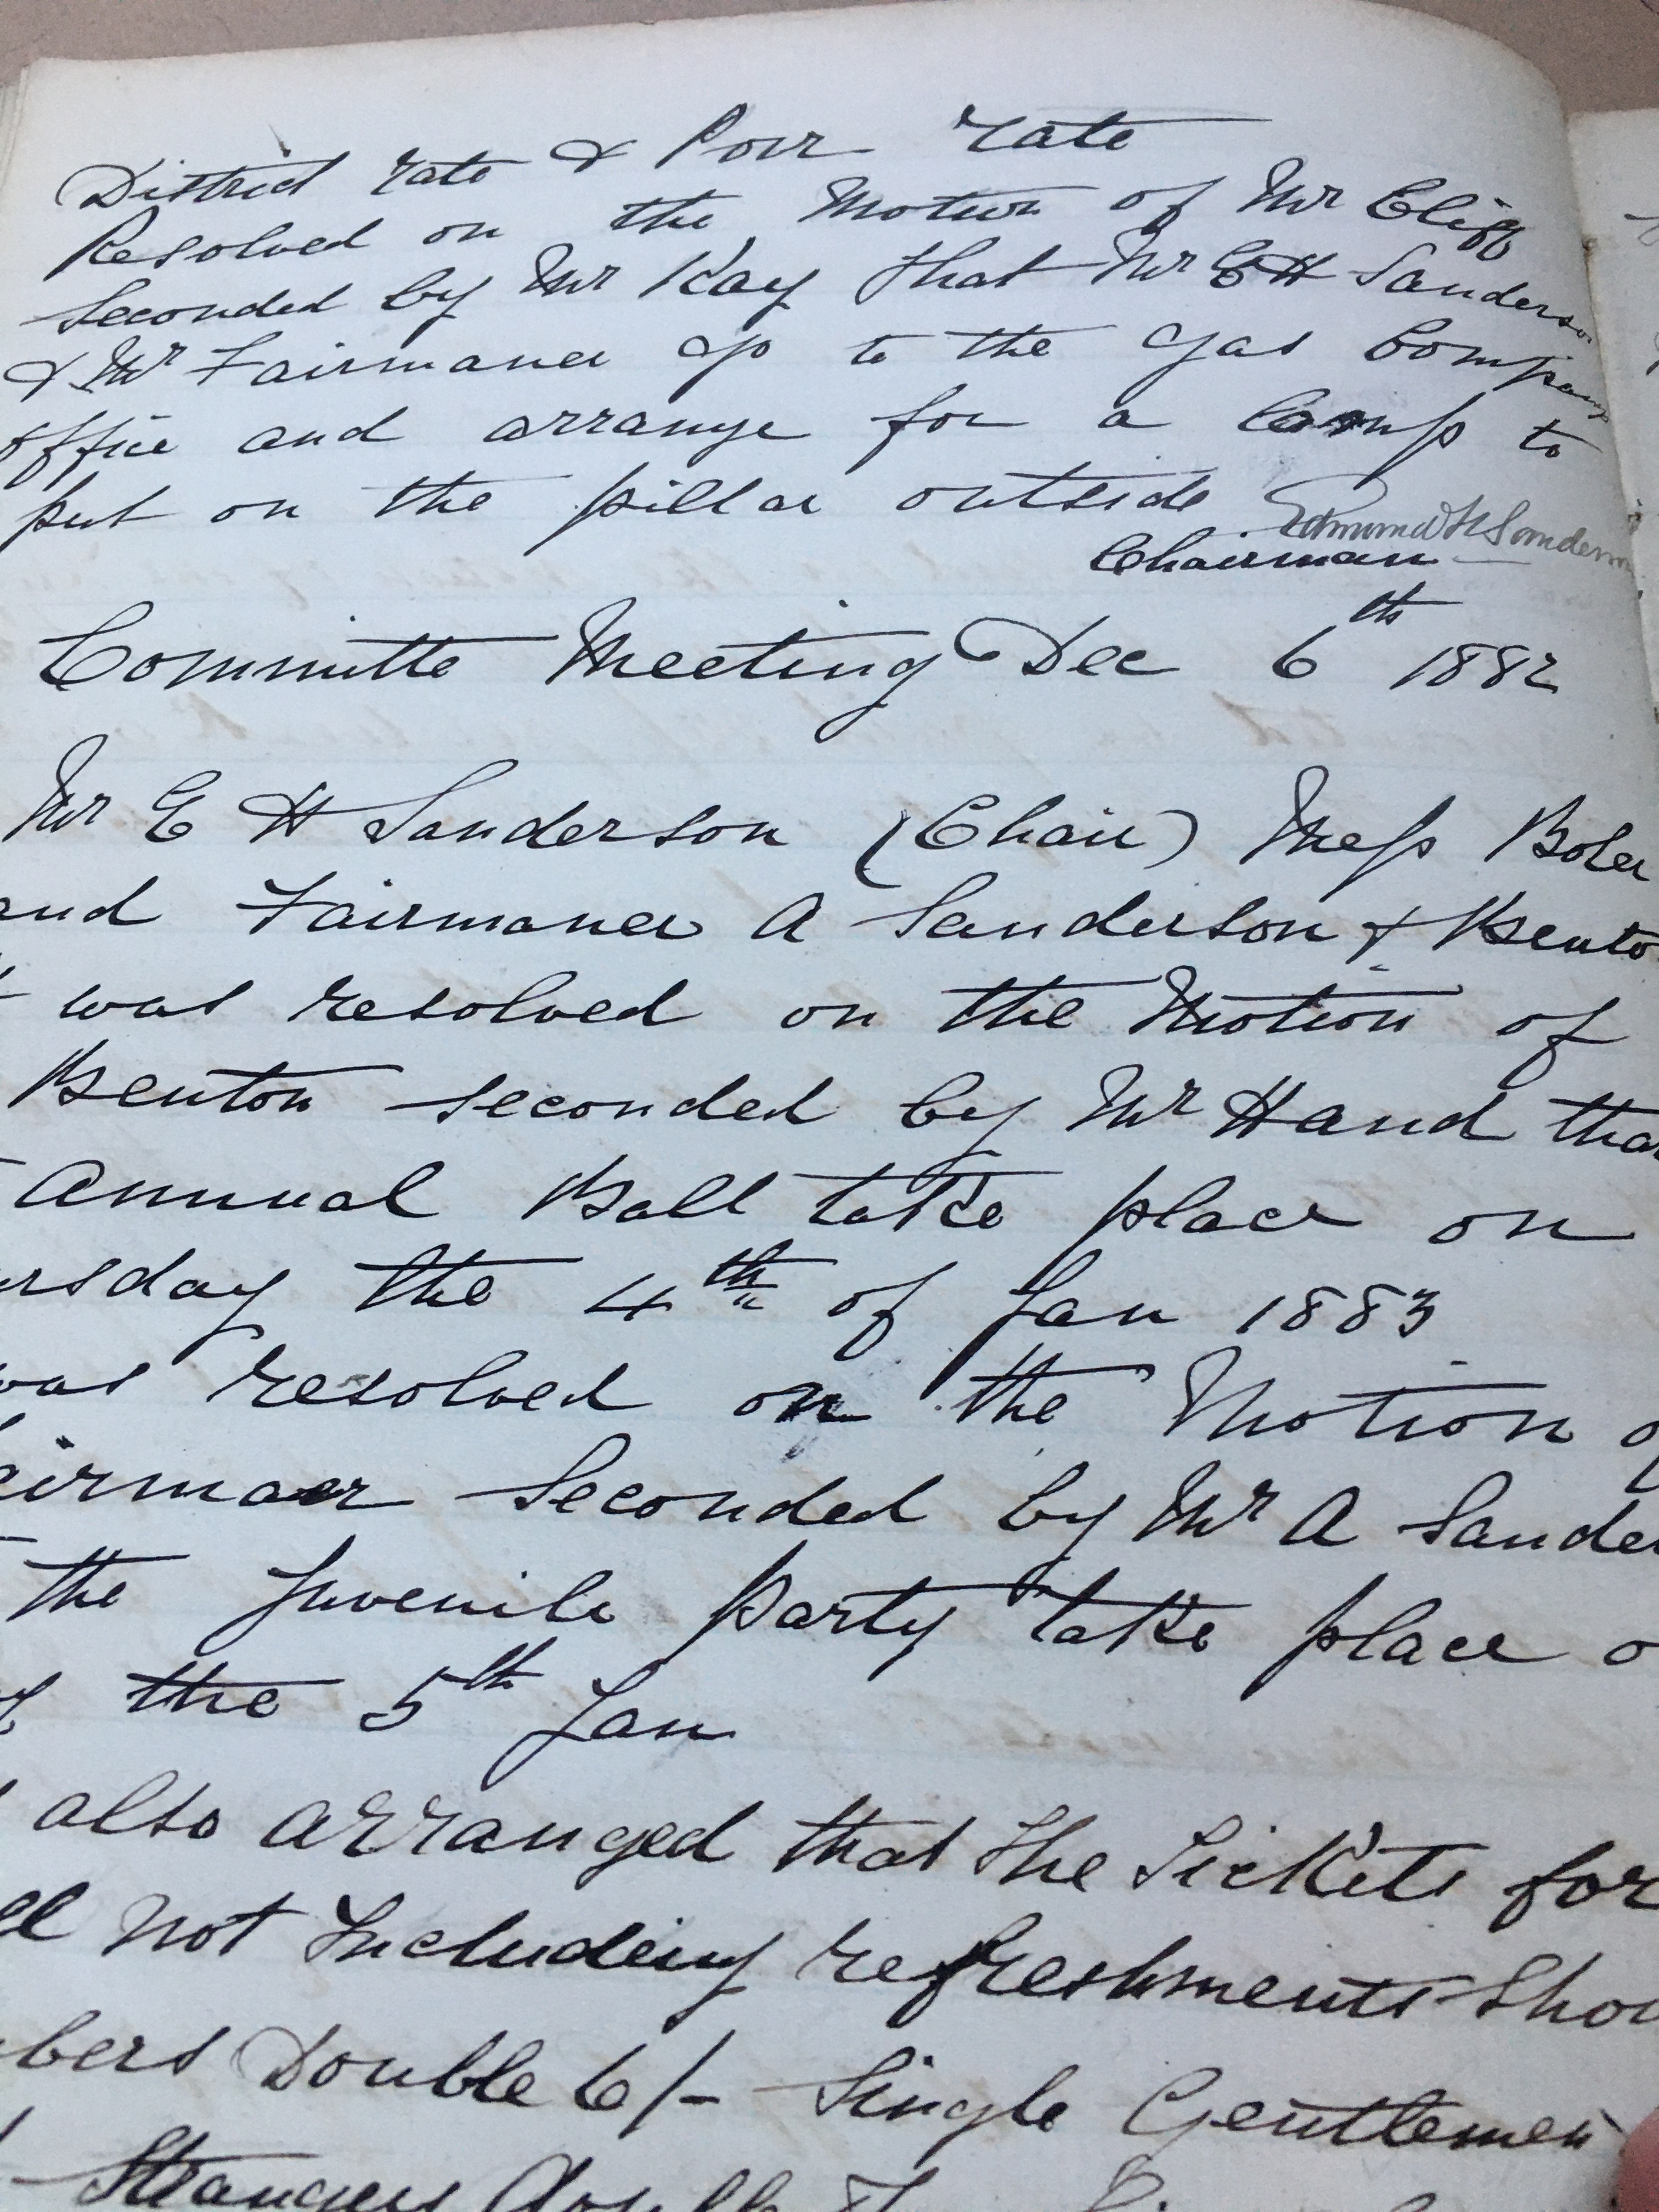 District rate & Poor rate
Resolved on the Motion of Mr Cliff
Seconded by Mr Kay that Mr E H Sanderson
& Mr Fairmaner go to the Gas Company
office and arrange for a lamp to
put on the pillar outside
Edmund H Sanderson
Chairman
Committe Meeting Dec 6th 1882
Mr E H Sanderson (Chair) Mess Boler
and Fairmaner A Sanderson & Bento
was resolved on the Motion of
Benton seconded by Mr Hand tha
Annual Ball take place on
rsday the 4th of Jan 1883
was resolved on the Motion o
airmaer Seconded by Mr A Sander
the Juvenile Party take place o
the 5th Jan
also arranged that the Tickets for
ll not Including refreshments Shou
bers Double 6/- Single Gentlemen
Strangers Double